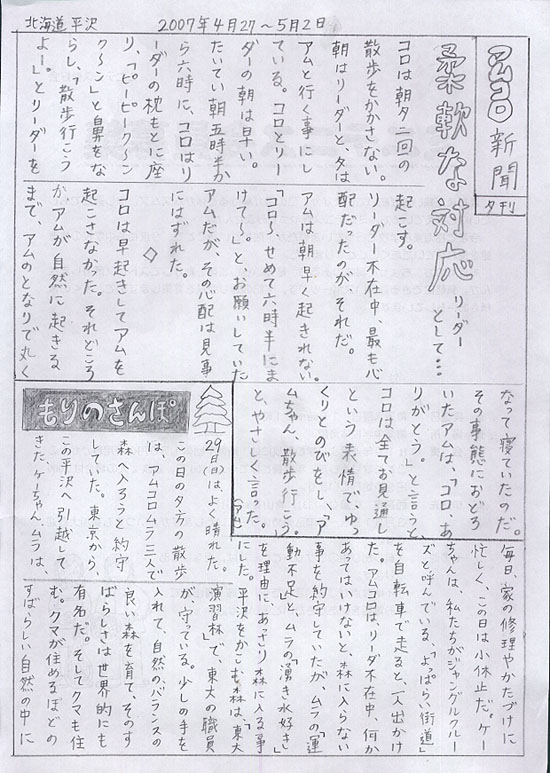 北海道平沢　2007年4月27〜5月2日
アムコロ新聞
夕刊
柔軟な対応
リーダー
として…
コロは朝夕二回の
散歩をかかさない。
朝はリーダーと、夕は
アムと行く事にし
ている。コロとリー
ダーの朝は早い。
たいてい朝五時半か
ら六時に、コロはリ
ーダーの枕もとに座
り、「ピーピークーン
クーン」と鼻をな
らし、「散歩行こう
よー」とリーダーを
起こす。
リーダー不在中、最も心
配だったのが、それだ。
アムは朝早く起きれない。
「コロ〜、せめて六時半にま
けて〜。」と、お願いしていた
アムだが、その心配は見事
にはずれた。
◇
コロは早起きしてアムを
起こさなかった。それどころ
か、アムが自然に起きる
まで、アムのとなりで丸く
なって寝ていたのだ。
その事態におどろ
いたアムは、「コロ、あ
りがとう。」と言うと、
コロは全てお見通し
という表情で、ゆっ
くりとのびをし、「ア
ムちゃん、散歩行こう。」
と、やさしく言った。
(アム)
もりのさんぽ
29日(日)はよく晴れた。
この日の夕方の散歩
は、アムコロムラ三人で
森へ入ろうと約守
していた。東京から、
この平沢へ引越して
きたケーちゃんムラは、
毎日、家の修理やかたづけに
忙しく、この日は小休止だ。ケー
ちゃんは、私たちがジャングルクルー
ズと呼んでいる、「よっぱらい街道」
を自転車で走ると、一人出かけ
た。アムコロは、リーダ不在中、何か
あってはいけないと、森に入らない
事を約守していたが、ムラの「運
動不足」と、ムラの「湧き水好き」
を理由に、あっさり森に入る事
にした。平沢をかこむ森は、「東大
演習林」で、東大の職員
が守っている。少しの手を
入れて、自然のバランスの
良い森を育て、そのす
ばらしさは世界的にも
有名だ。そしてクマも住
む。クマが住めるほどの
すばらしい自然の中に